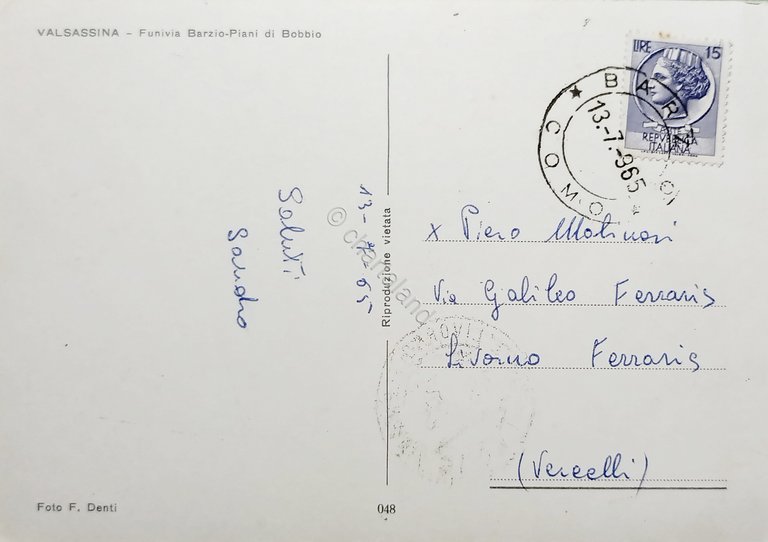 VALSASSINA - Funivia Barzio-Piani di Bobbio
LIRE 15
POSTE
REPVBBLICA
ITALIANA
BARZIO
13.-7.-965
COMO
13-7-65
Saluti
Sandro
Riproduzione vietata
© chartaland
x Piero Molinari
Via Galileo Ferraris
Livorno Ferraris
(Vercelli)
Foto F. Denti
048